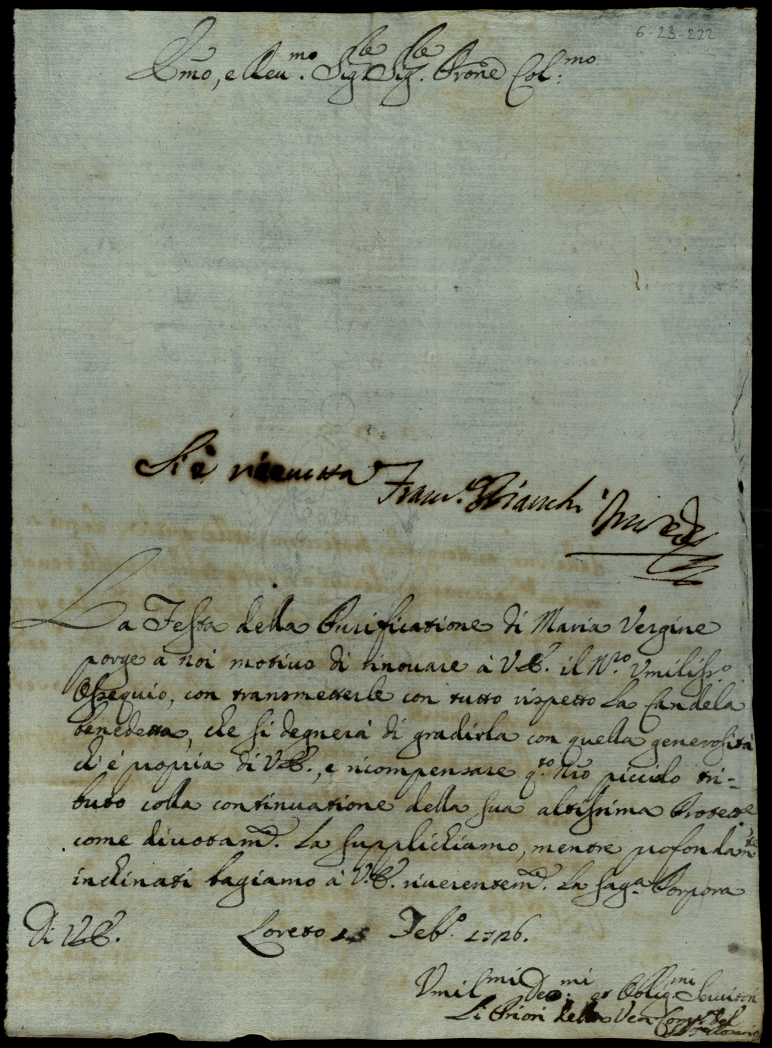 6-23-222
Emo, e Reu.mo Sig.r Sig.r Prone Col.mo
Si è riceuuta Franc.o Bianchi
La Festa della Purificatione di Maria Vergine
porge à noi motiuo di rinouare à V.E. il N.ro Vmiliss.o
Ossequio, con transmetterle con tutto rispetto La Candela
benedetta, che si degnerà di gradirla con quella generosità
ch'è propria di V.E., e ricompensare q.to Nro piccolo tri-
buto colla continuatione della sua altissima Protett.e
come diuotam.e La supplichiamo, mentre profondam.te
inchinati bagiamo à V.E. riuerentem.e La Sag.a Porpora
Di V.E. Loreto 15 Feb.o 1726.
Vmil.mi Deu.mi et Oblig.mi Seruitori
Li Priori della Ven. Comp.a del